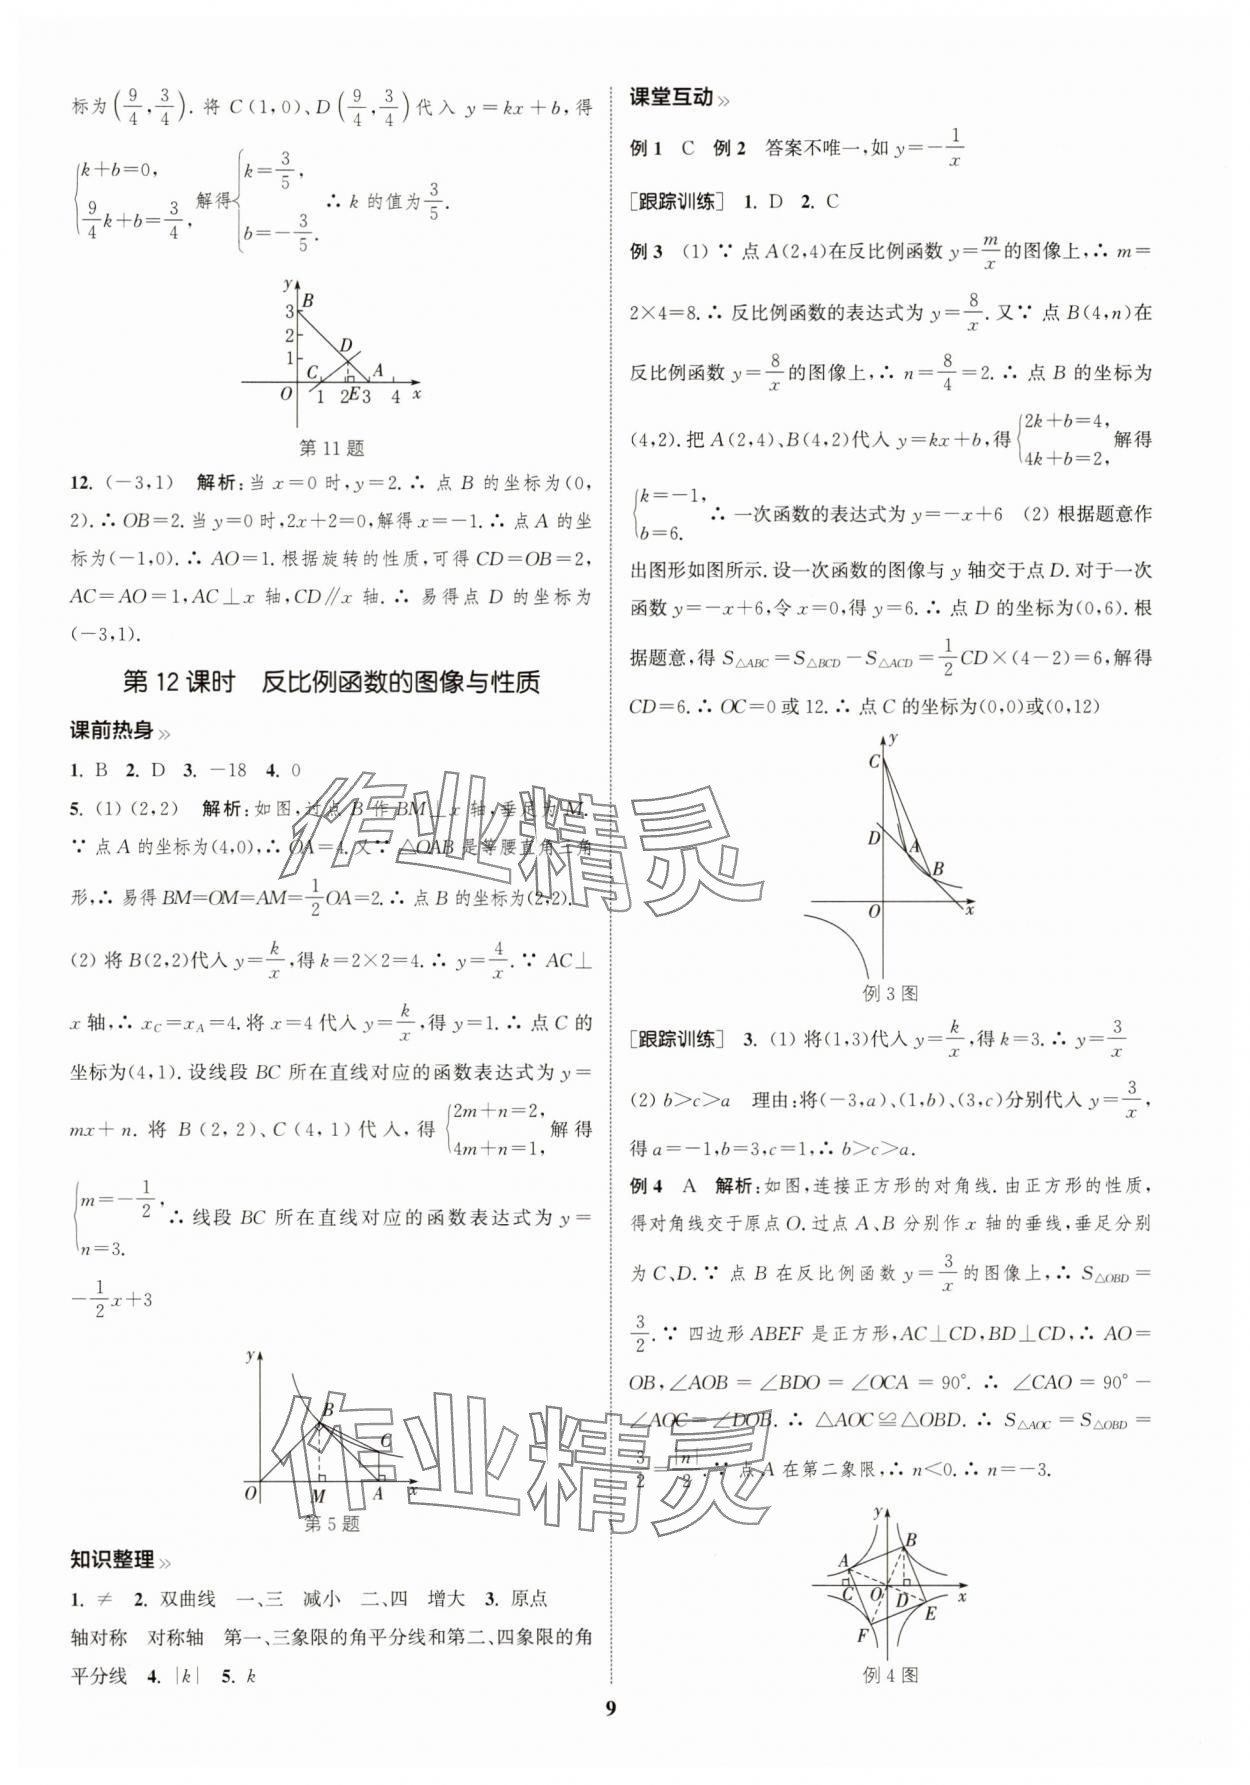 标为(9/4,3/4). 将 C(1,0)、D(9/4,3/4)代入 y=kx+b,得
{k+b=0, 9/4k+b=3/4, 解得{k=3/5, b=-3/5. ∴ k 的值为3/5.
y
3
B
2
D
1
C
A
O
1
2
E
3
4
x
第 11 题
12. (-3,1) 解析:当 x=0 时,y=2.∴ 点 B 的坐标为(0,
2).∴ OB=2.当 y=0 时,2x+2=0,解得 x=-1.∴ 点 A 的坐
标为(-1,0).∴ AO=1.根据旋转的性质,可得 CD=OB=2,
AC=AO=1,AC⊥x 轴,CD∥x 轴.∴ 易得点 D 的坐标为
(-3,1).
第 12 课时 反比例函数的图像与性质
课前热身»
1. B 2. D 3. -18 4. 0
5. (1) (2,2) 解析:如图,过点 B 作 BM⊥x 轴,垂足为 M.
∵ 点 A 的坐标为(4,0),∴ OA=4.又∵ △OAB 是等腰直角三角
形,∴ 易得 BM=OM=AM=1/2OA=2.∴ 点 B 的坐标为(2,2).
(2) 将 B(2,2)代入 y=k/x,得 k=2×2=4.∴ y=4/x.∵ AC⊥
x 轴,∴ x_C=x_A=4.将 x=4 代入 y=k/x,得 y=1.∴ 点 C 的
坐标为(4,1).设线段 BC 所在直线对应的函数表达式为 y=
mx+n. 将 B(2,2)、C(4,1)代入,得{2m+n=2, 4m+n=1,解得
{m=-1/2, n=3. ∴ 线段 BC 所在直线对应的函数表达式为 y=
-1/2x+3
y
B
C
O
M
A
x
第 5 题
知识整理»
1. ≠ 2. 双曲线 一、三 减小 二、四 增大 3. 原点
轴对称 对称轴 第一、三象限的角平分线和第二、四象限的角
平分线 4. |k| 5. k
课堂互动»
例 1 C 例 2 答案不唯一,如 y=-1/x
[跟踪训练] 1. D 2. C
例 3 (1) ∵ 点 A(2,4)在反比例函数 y=m/x的图像上,∴ m=
2×4=8.∴ 反比例函数的表达式为 y=8/x.又∵ 点 B(4,n)在
反比例函数 y=8/x的图像上,∴ n=8/4=2.∴ 点 B 的坐标为
(4,2).把 A(2,4)、B(4,2)代入 y=kx+b,得{2k+b=4, 4k+b=2,解得
{k=-1, b=6. ∴ 一次函数的表达式为 y=-x+6 (2) 根据题意作
出图形如图所示.设一次函数的图像与 y 轴交于点 D.对于一次
函数 y=-x+6,令 x=0,得 y=6.∴ 点 D 的坐标为(0,6).根
据题意,得 S△ABC=S△BCD-S△ACD=1/2CD×(4-2)=6,解得
CD=6.∴ OC=0 或 12.∴ 点 C 的坐标为(0,0)或(0,12)
y
C
D
A
B
O
x
例 3 图
[跟踪训练] 3. (1) 将(1,3)代入 y=k/x,得 k=3.∴ y=3/x
(2) b>c>a 理由:将(-3,a)、(1,b)、(3,c)分别代入 y=3/x,
得 a=-1,b=3,c=1,∴ b>c>a.
例 4 A 解析:如图,连接正方形的对角线.由正方形的性质,
得对角线交于原点 O.过点 A、B 分别作 x 轴的垂线,垂足分别
为 C、D.∵ 点 B 在反比例函数 y=3/x的图像上,∴ S△OBD=
3/2.∵ 四边形 ABEF 是正方形,AC⊥CD,BD⊥CD,∴ AO=
OB,∠AOB=∠BDO=∠OCA=90°.∴ ∠CAO=90°-
∠AOC=∠DOB.∴ △AOC≌△OBD.∴ S△AOC=S△OBD=
3/2=|n|/2.∵ 点 A 在第二象限,∴ n<0.∴ n=-3.
y
B
A
C
O
D
E
x
F
例 4 图
9
作业精灵
作业精灵